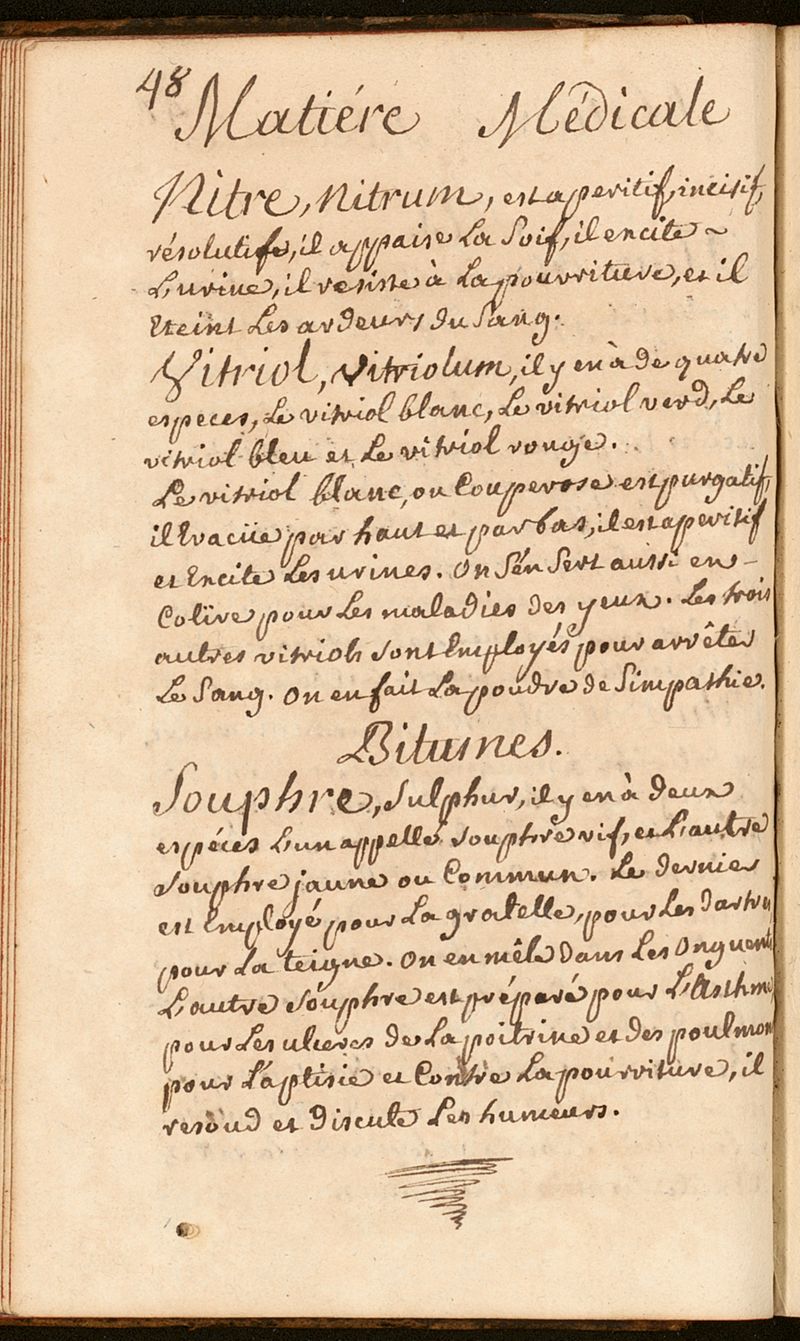 48
Matiére Médicale
Nitre, Nitrum, est aperitif, incisif,
résolutife, il appaise La Soif, il encite ~
L'urine, il resiste à La pourriture, et il
Eteint Les ardeurs du Sang.
Vitriol, vitriolum, il y en à de quatre
especes, Le vitriol blanc, Le vitriol verd, Le
vitriol bleu et Le vitriol rouge.
Le vitriol blanc, ou Couperose est purgatif,
il Evacüe par haut et par bas, il est aperitif
et Encite Les urines. On S'én Sert aussi en -
Colire pour Les maladies des yeux. Les trois
autres vitriols sont Employés pour arrêter
Le Sang. On en fait La poudre de Simpathie.
Bitumes.
Souphre, Sulphur, il y en à deux
espéces L'un appellé souphre vif, et L'autre
Souphre jaune ou Commun. Le dernier
est Employé pour La gratelle, pour Les dartres
pour La teigne. On en mêle dans Les Onguents
L'autre Soúphre est préparé pour L'Asthme,
pour Les ulceres de La poitrine et des poulmons
pour L'aptisie et Contre La pourriture, il
resoud et discute Les humeurs.